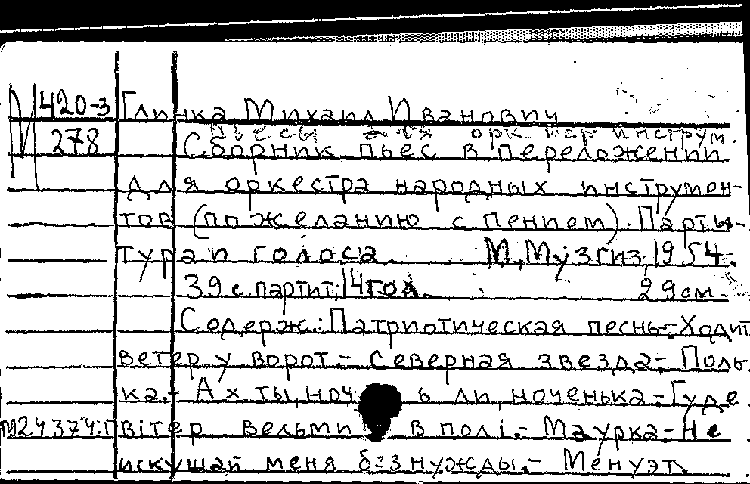 М420-3 Глинка Михаил Иванович
278 Пьесы для орк. нар. инструм.
Сборник пьес в переложении
для оркестра народных инструмен-
тов (по желанию с пением). Парти-
тура и голоса. М., Музгиз, 1954.
39 с. партит; 14 гол. 29 см.
Содерж: Патриотическая песнь.-Ходит
ветер у ворот.- Северная звезда.- Поль-
ка.- Ах ты, ночь ли, ноченька.- Гуде
М24374:П вiтер вельми в полi.- Маурка.-Не
искушай меня без нужды.- Менуэт.